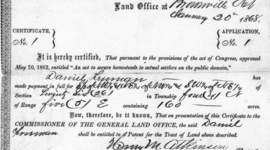 Land Office at Brownville Neb
January 20th 1868.
CERTIFICATE,
No. 1
APPLICATION,
No. 1
It is hereby certified, That pursuant to the provisions of the act of Congress, approved
May 20, 1862, entitled "An act to secure homesteads to actual settlers on the public domain,"
Daniel Freeman has
made payment in full for
Twenty Six (26) in Township four (4) N
of Range five (5) E containing 160 acres.
Now, therefore, be it known, That on presentation of this Certificate to the
COMMISSIONER OF THE GENERAL LAND OFFICE, the said Daniel
Freeman shall be entitled to a Patent for the Tract of Land above described.
Henry M. Atkinson